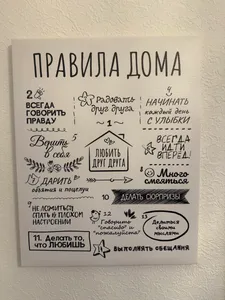 ПРАВИЛА ДОМА
2
ВСЕГДА
ГОВОРИТЬ
ПРАВДУ
Радовать
друг друга
~ 1 ~
9
НАЧИНАТЬ
каждый день
С УЛЫБКИ
5
Верить
в себя
ЛЮБИТЬ
ДРУГ ДРУГА
ВСЕГДА
ИДТИ
ВПЕРЕД!
ДАРИТЬ
объятия и поцелуи
Много
смеяться
10
ДЕЛАТЬ СЮРПРИЗЫ
НЕ ЛОЖИТЬСЯ
СПАТЬ В ПЛОХОМ
НАСТРОЕНИИ
12
Говорить
"спасибо" и
"пожалуйста"
13
Делиться
своими
мыслями
11. Делать то,
что ЛЮБИШЬ
ВЫПОЛНЯТЬ ОБЕЩАНИЯ